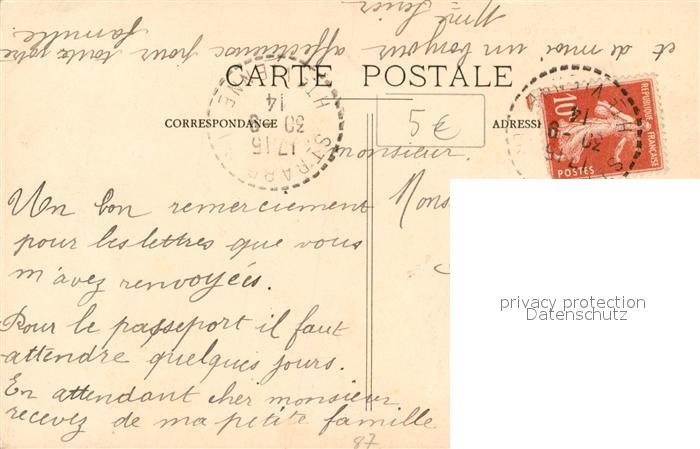 CARTE POSTALE
CORRESPONDANCE
5€
monsieur.
Un bon remerciement
pour les lettres que vous
m'avez renvoyées.
Pour le passeport il faut
attendre quelques jours.
En attendant cher monsieur
recevez de ma petite famille
et de moi un bonjour affectueux pour toute votre
famille.
Mme
87
ADRESSE
Mons
REPUBLIQUE FRANÇAISE
10
POSTES
17 15
30 - 9
14
HTE VIENNE
17 15
30 - 9
14
privacy protection
Datenschutz